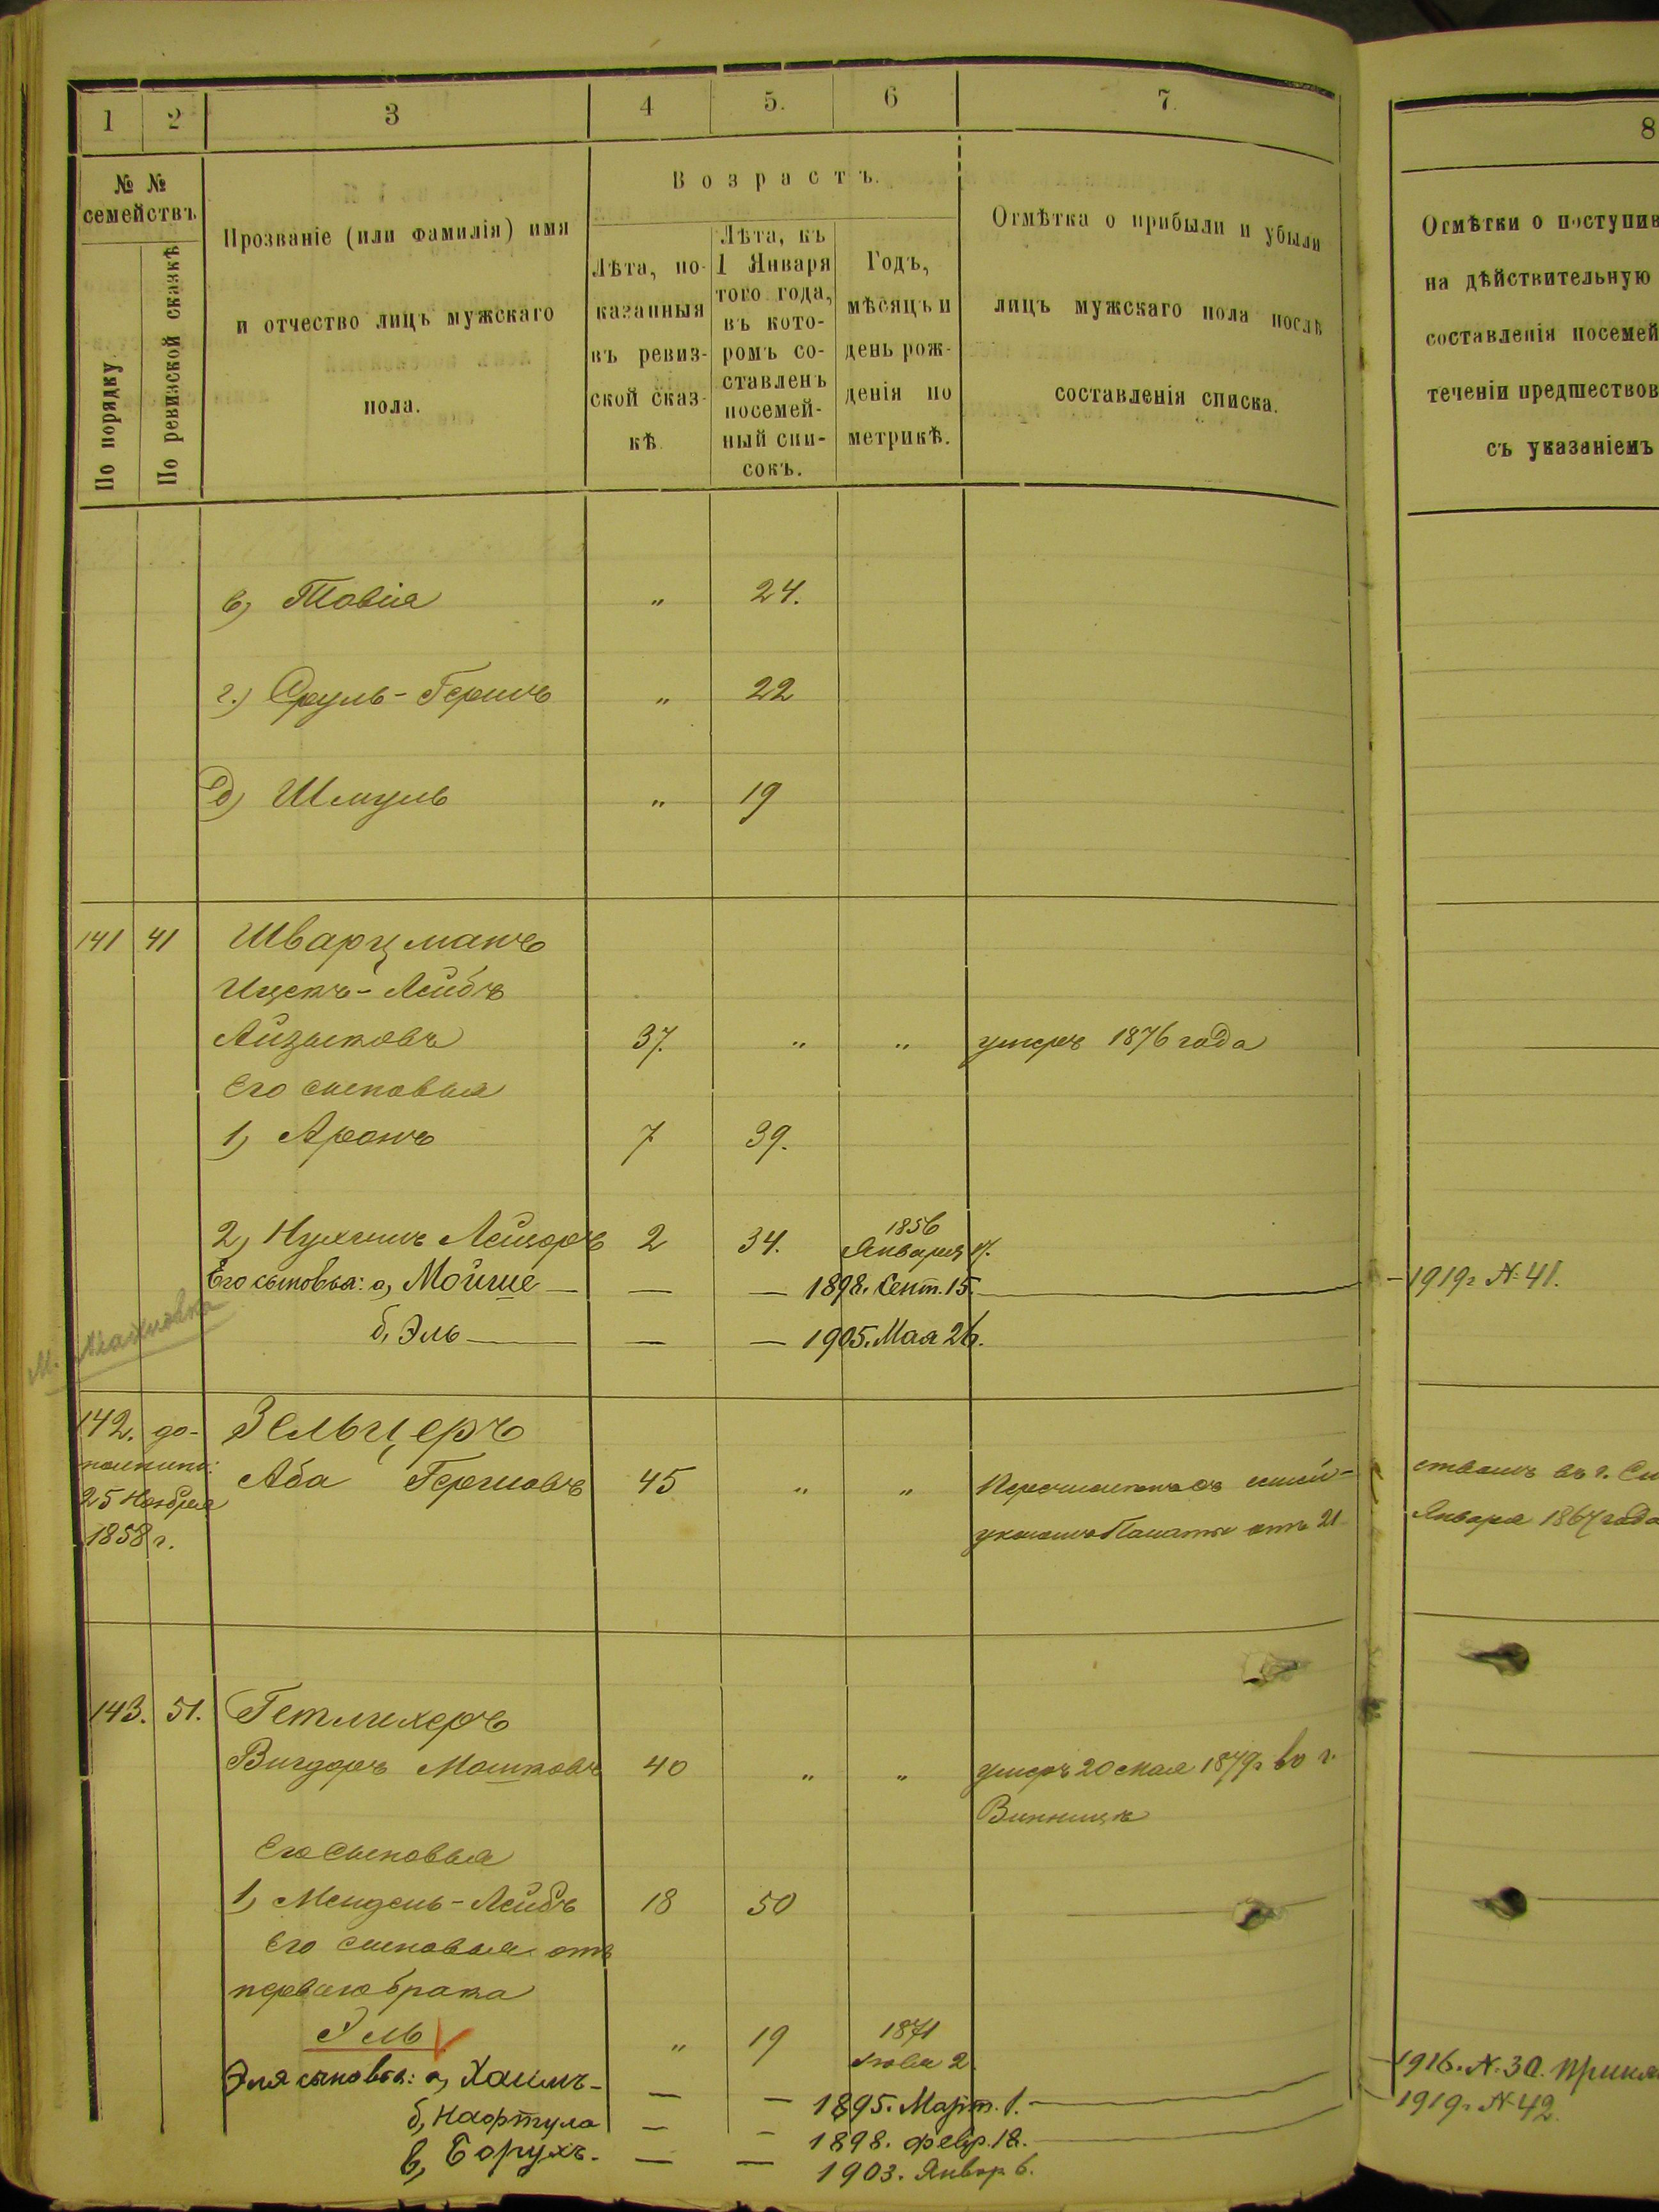 1 2 3 4 5. 6 7. 8
№ № семействъ
По порядку
По ревизской сказкѣ
Прозваніе (или Фамилія) имя
и отчество лицъ мужскаго
пола.
Возрастъ.
Лѣта, по-
казанныя
въ ревиз-
ской сказ-
кѣ
Лѣта, къ
1 Января
того года,
въ кото-
ромъ со-
ставленъ
посемей-
ный спи-
сокъ.
Годъ,
мѣсяцъ и
день рож-
денія по
метрикѣ.
Отмѣтка о прибыли и убыли
лицъ мужскаго пола послѣ
составленія списка.
Отмѣтки о поступив
на дѣйствительную
составленія посемей
теченіи предшествов
съ указаніемъ
в) Товія " 24.
г.) Сруль-Гершъ " 22
д) Шмуль " 19
141 41 Шварцманъ
Ицекъ-Лейбъ
Айзыковъ 37. " " умеръ 1876 года
Его сыновья
1) Аронъ 7 39.
2) Нухимъ Лейзоръ 2 34. 1856
Января
Его сыновья: а) Мойше — — — 1898. Сент. 15. — 1919 г. № 41.
б, Эль — — — 1905. Мая 26.
М.
142. до- Зельцеръ
25 Ноября
1858 г.
Аба Гершовъ 45 " "
отъ 21
Января 1867 года
143. 51. Гетлихеръ
Вигдоръ Мошковъ 40 " " умеръ 20 мая 1879 г. во г.
Винницѣ
Его сыновья
1) Мендель-Лейбъ 18 50
Его сыновья отъ
перваго брака
Эль " 19 1871
2.
Эля сыновья: а, Хаимъ — — — 1895. Март. 1. — 1916 г. № 30. Приня
б, Нафтула — — 1898. Февр. 18. — 1919 г. № 42.
в, Борухъ. — — 1903. Январ. 6.